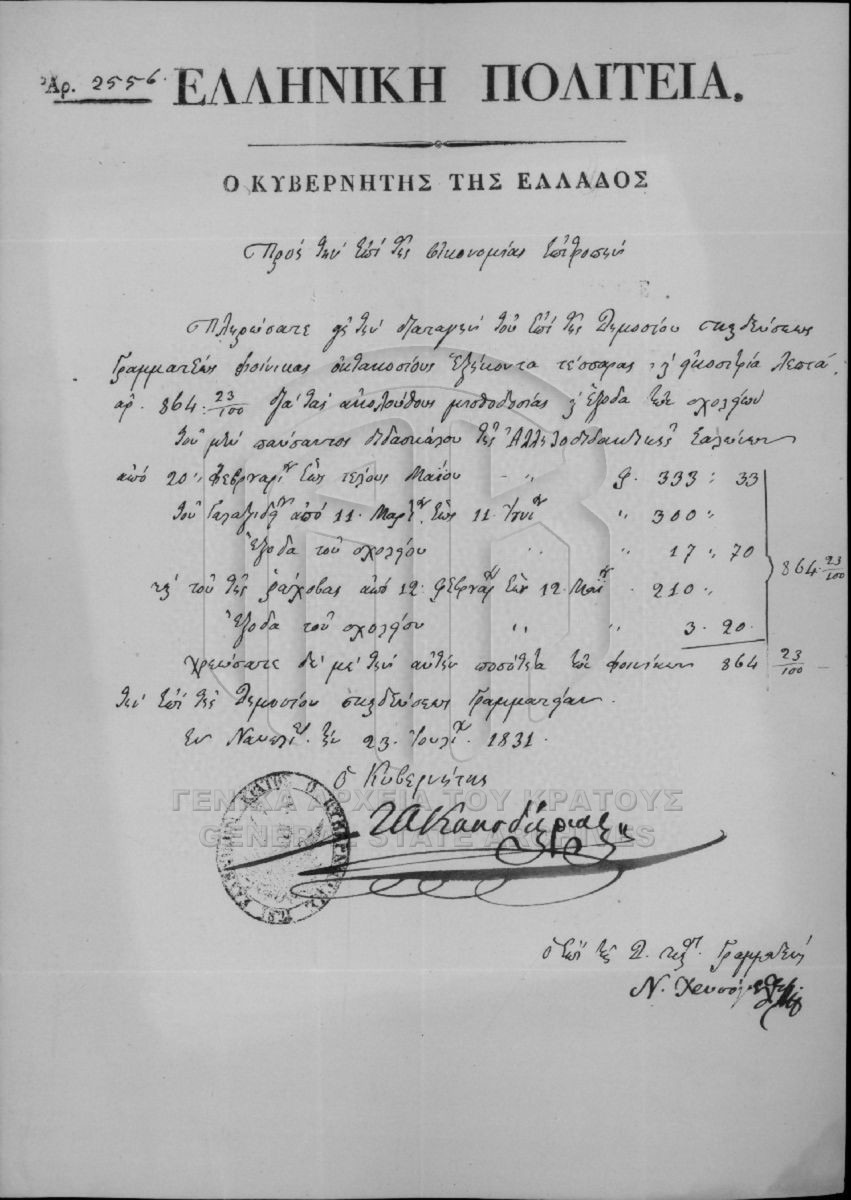 Ἀρ. 2556.
ΕΛΛΗΝΙΚΗ ΠΟΛΙΤΕΙΑ.
Ο ΚΥΒΕΡΝΗΤΗΣ ΤΗΣ ΕΛΛΑΔΟΣ
Πρὸς τὴν ἐπὶ τῆς Οἰκονομίας Ἐπιτροπὴν
Πληρώσατε μὲ τὴν διαταγὴν τοῦ ἐπὶ τῆς Δημοσίου ἐκπαιδεύσεως
Γραμματέως φοίνικας ὀκτακοσίους ἑξήκοντα τέσσαρας, εἰκοσιτρία λεπτά
ἀρ. 864: 23/100 διὰ τὰς ἀκολούθους μισθοδοσίας ἔξοδα τῶν σχολείων
τοῦ μὲν παύσαντος διδασκάλου τῆς Ἀλληλοδιδακτικῆς
ἀπὸ 20 Φεβρουαρίου ἕως τέλους Μαΐου - " φ. 333 : 33
τοῦ Γαλαξιδίου ἀπὸ 11 Μαρτ. ἕως 11 Ἰουνίου " 300 "
ἔξοδα τοῦ σχολείου " " 17 " 70
τοῦ τῆς Ῥάχοβας ἀπὸ 12 Φεβρουαρ ἕως 12 Μαΐου . 210 "
864. 23/100
ἔξοδα τοῦ σχολείου " " 3. 20.
χρεώσατε δὲ μὲ τὴν αὐτὴν ποσότητα τῶν φοινίκων 864 23/100
τὴν ἐπὶ τῆς Δημοσίου ἐκπαιδεύσεως Γραμματείαν.
Ἐν Ναυπλίῳ τὴν 23 Ἰουλίου 1831.
Ὁ Κυβερνήτης
ΓΕΝΙΚΑ ΑΡΧΕΙΑ ΤΟΥ ΚΡΑΤΟΥΣ
ΙΑ Καποδίστριας
GENERAL STATE ARCHIVES
ὁ ἐπὶ τῆς Δ. ἐκπ. Γραμματεὺς
Ν.